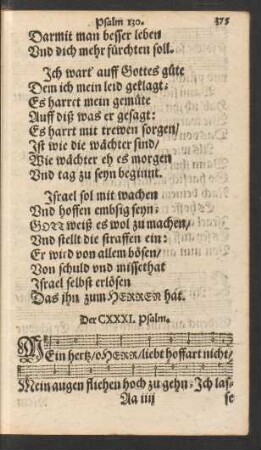 Psalm 130. 375
Darmit man besser leben
Vnd dich mehr fürchten soll.
Ich wart auff Gottes güte
Dem ich mein leid geklagt:
Es harret mein gemüte
Auff diß was er gesagt:
Es harrt mit trewen sorgen/
Ist wie die wächter sind/
Wie wächter eh es morgen
Vnd tag zu seyn beginnt.
Israel sol mit wachen
Vnd hoffen embsig seyn:
GOTT weiß es wol zu machen/
Vnd stellt die straffen ein:
Er wird von allem bösen/
Von schuld vnd missethat
Israel selbst erlösen
Das ihn zum HERREN hat.
Der CXXXI. Psalm.
MEin hertz/ o HERR/ liebt hoffart nicht/
Mein augen fliehen hoch zu gehn: Ich las-
Aa iiij se